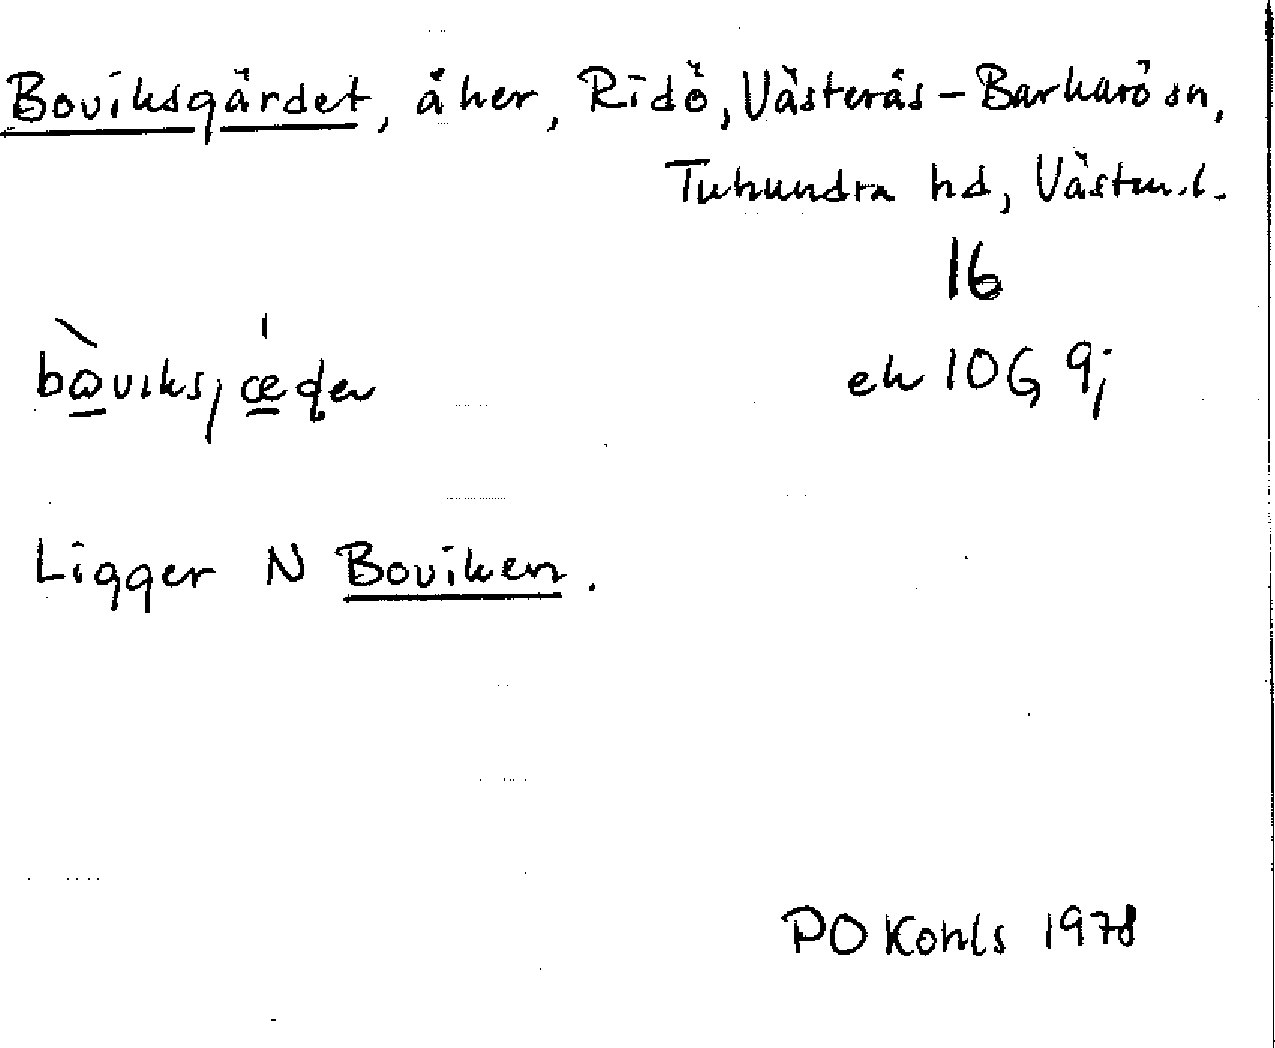 Boviksgärdet, åker, Ridö, Västerås-Barkarö sn,
Tuhundra hd, Västm.l.
16
ek 10G 9j
Ligger N Boviken.
PO Kohls 1978